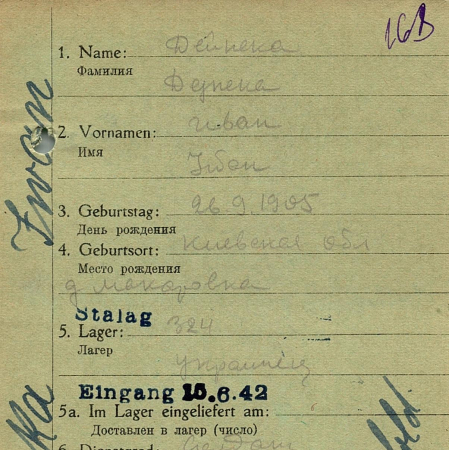 16B
1. Name: Дейнека
Фамилия
Iwan
2. Vornamen: иван
Имя
3. Geburtstag: 26.9.1905
День рождения
4. Geburtsort: Киевская обл
Место рождения
д Макаровка
Stalag
5. Lager: 324
Лагер
украинец
Eingang 15.6.42
5a. Im Lager eingeliefert am:
Доставлен в лагер (число)